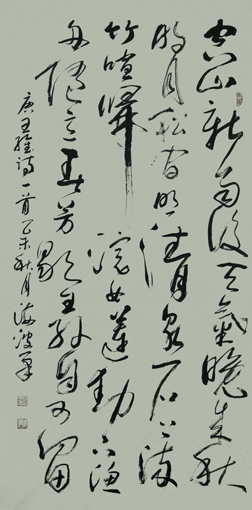 空山新雨后天气晚来秋
明月松间照清泉石上流
竹喧归浣女莲动下渔
舟随意春芳歇王孙自可留
唐王维诗一首乙未秋月海波书